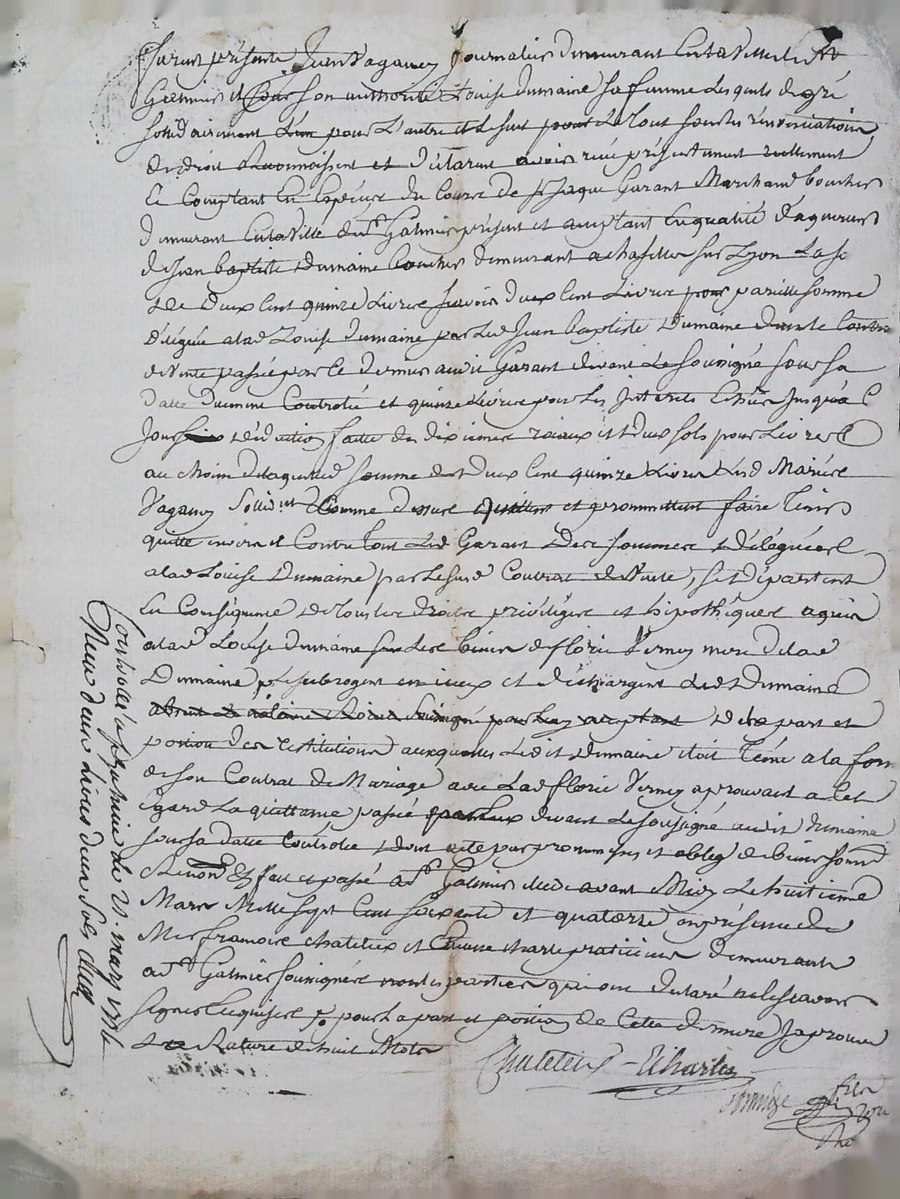 Furent présents Jean Vaganey Journalier demeurant en la Ville de St
Galmier et sous son authorité Louise Dumaine sa femme Lesquels de gré
solidairement l'un pour L'autre et Le seul pour Le tout sous les renonciations
de droit Reconnoissent et déclarent avoir reçu présentement réellement
Et Comptant En Espèces du Cours de Sr Jaque Garant Marchand boucher
demeurant En la Ville du St Galmier présent et acceptant En qualité d'aquereur
de Jean baptiste Dumaine boucher demeurant a chaselles sur Lyon La so
de Deux Cent quinze Livres savoir deux Cent Livres pour pareille somme
déléguée a lad Louise Dumaine par Led Jean baptiste Dumaine dans le Contra
de Vente passée par Ce dernier audit Garant devant Le soussigné sous sa
datte duement Controllé et quinze Livres pour Les Interets Echus Jusqu'a C
Jour déduction faitte des dixiemes roiaux et deux sols pour Livre
au moien de laquelle somme de deux Cent quinze Livres Lesd Mariés
Vaganey Solidt Comme dessus quittent et promettent faire tenir
quitte envers et Contre tous Led Garant des sommes déléguées
a lad Louise Dumaine par Le susd Contrat de Vente, se départent
En Conséquence de tous les droits privilèges et hipothèques aquis
a lad Louise Dumaine sur Les biens de florie Verney mere de lad
Dumaine et subrogent en iceux et déchargent led Dumaine
acceptant de sa part et
portion des restitutions auxquelles Ledit Dumaine étoit tenu a la form
de son Contrat de Mariage avec Lad florie Verney aprouvant a Cet
égard La quittance passée devant Le soussigné audit Dumaine
sous sa datte Controllée dont acte par promesses et oblig de biens soumd
Renond Et fait et passé a St Galmier avant Midy Le huitième
Mars Mille Sept Cent soixante et quatorze en présence de
Mes françois chateleux et Etienne charle praticiens demeurants
a St Galmier soussignés non les parties qui ont déclaré ne le scavoir
signer Enquises pour La part et portion de Cette derniere J'aprouve
La Rature de huit Mots
Chateleux - Echarles
Controllé a St Galmier le 21 mars 1774
Reçu deux livres deux sols